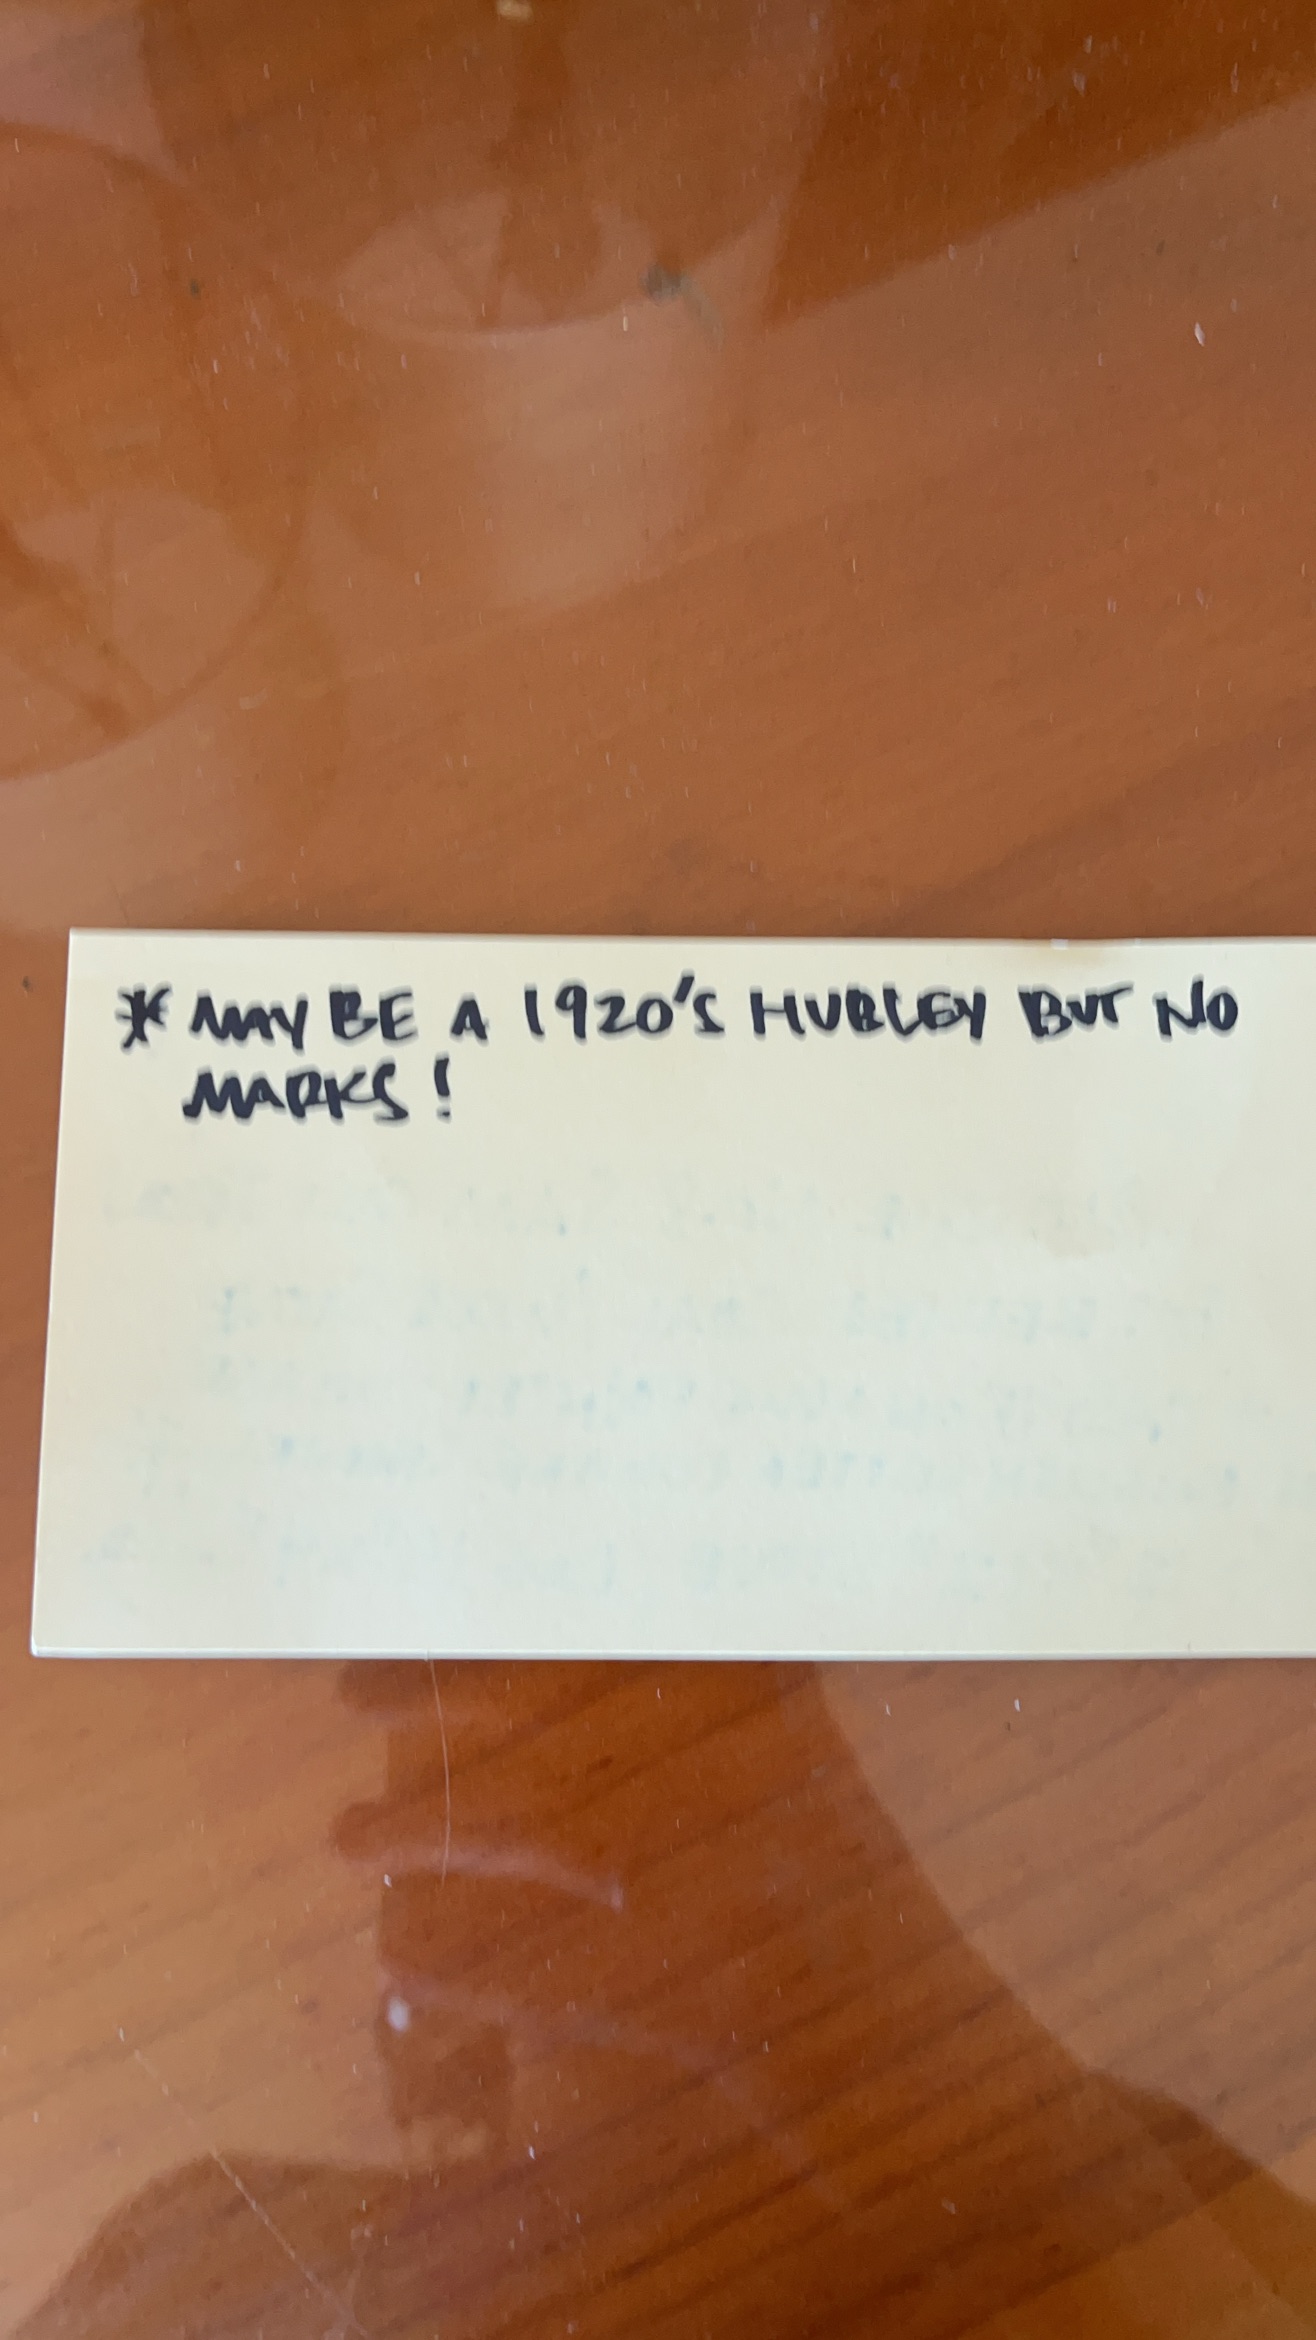 * MAY BE A 1920's HURLEY BUT NO
MARKS!